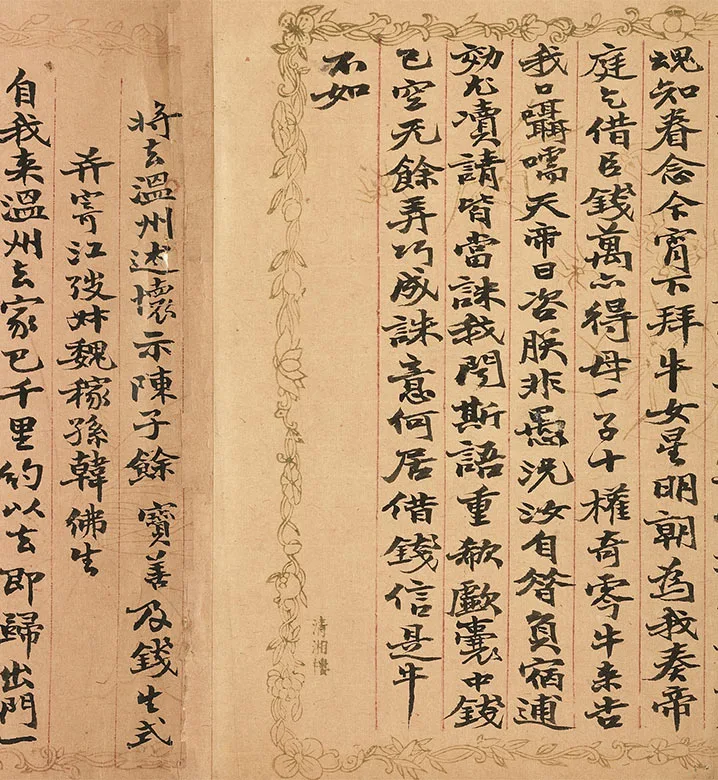 知眷念今宵下拜牛女星明朝為我奏帝
庭乞借臣錢萬亦得母一子十權奇零牛來告
我口囁嚅天帝曰咨朕非愚況汝自負宿逋
効尤瀆請皆當誅我聞斯語重欷歔囊中錢
已空无餘弄巧成誅意何居借錢信是牛
不如
清湘樓
將去溫州述懷示陳子餘 寶善及錢生式
并寄江弢叔魏稼孫韓佛生
自我来溫州去家已千里約以去即歸出門一